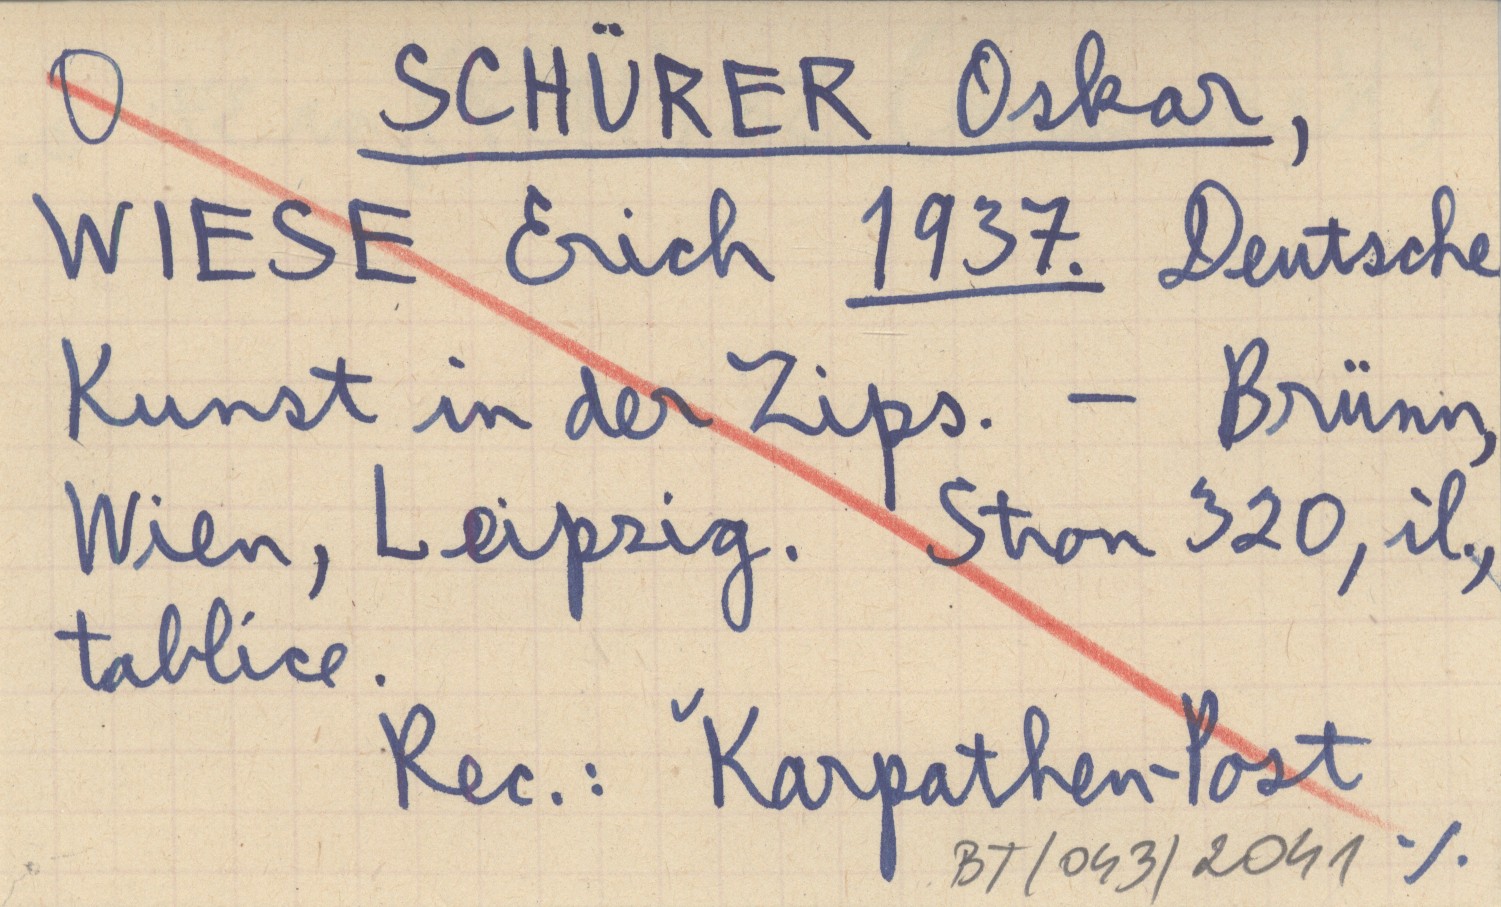 O SCHÜRER Oskar,
WIESE Erich 1937. Deutsche
Kunst in der Zips. – Brünn,
Wien, Leipzig. Stron 320, il.,
tablice.
Rec.: ˇKarpathen-Post
BT/043/2041 ·/.